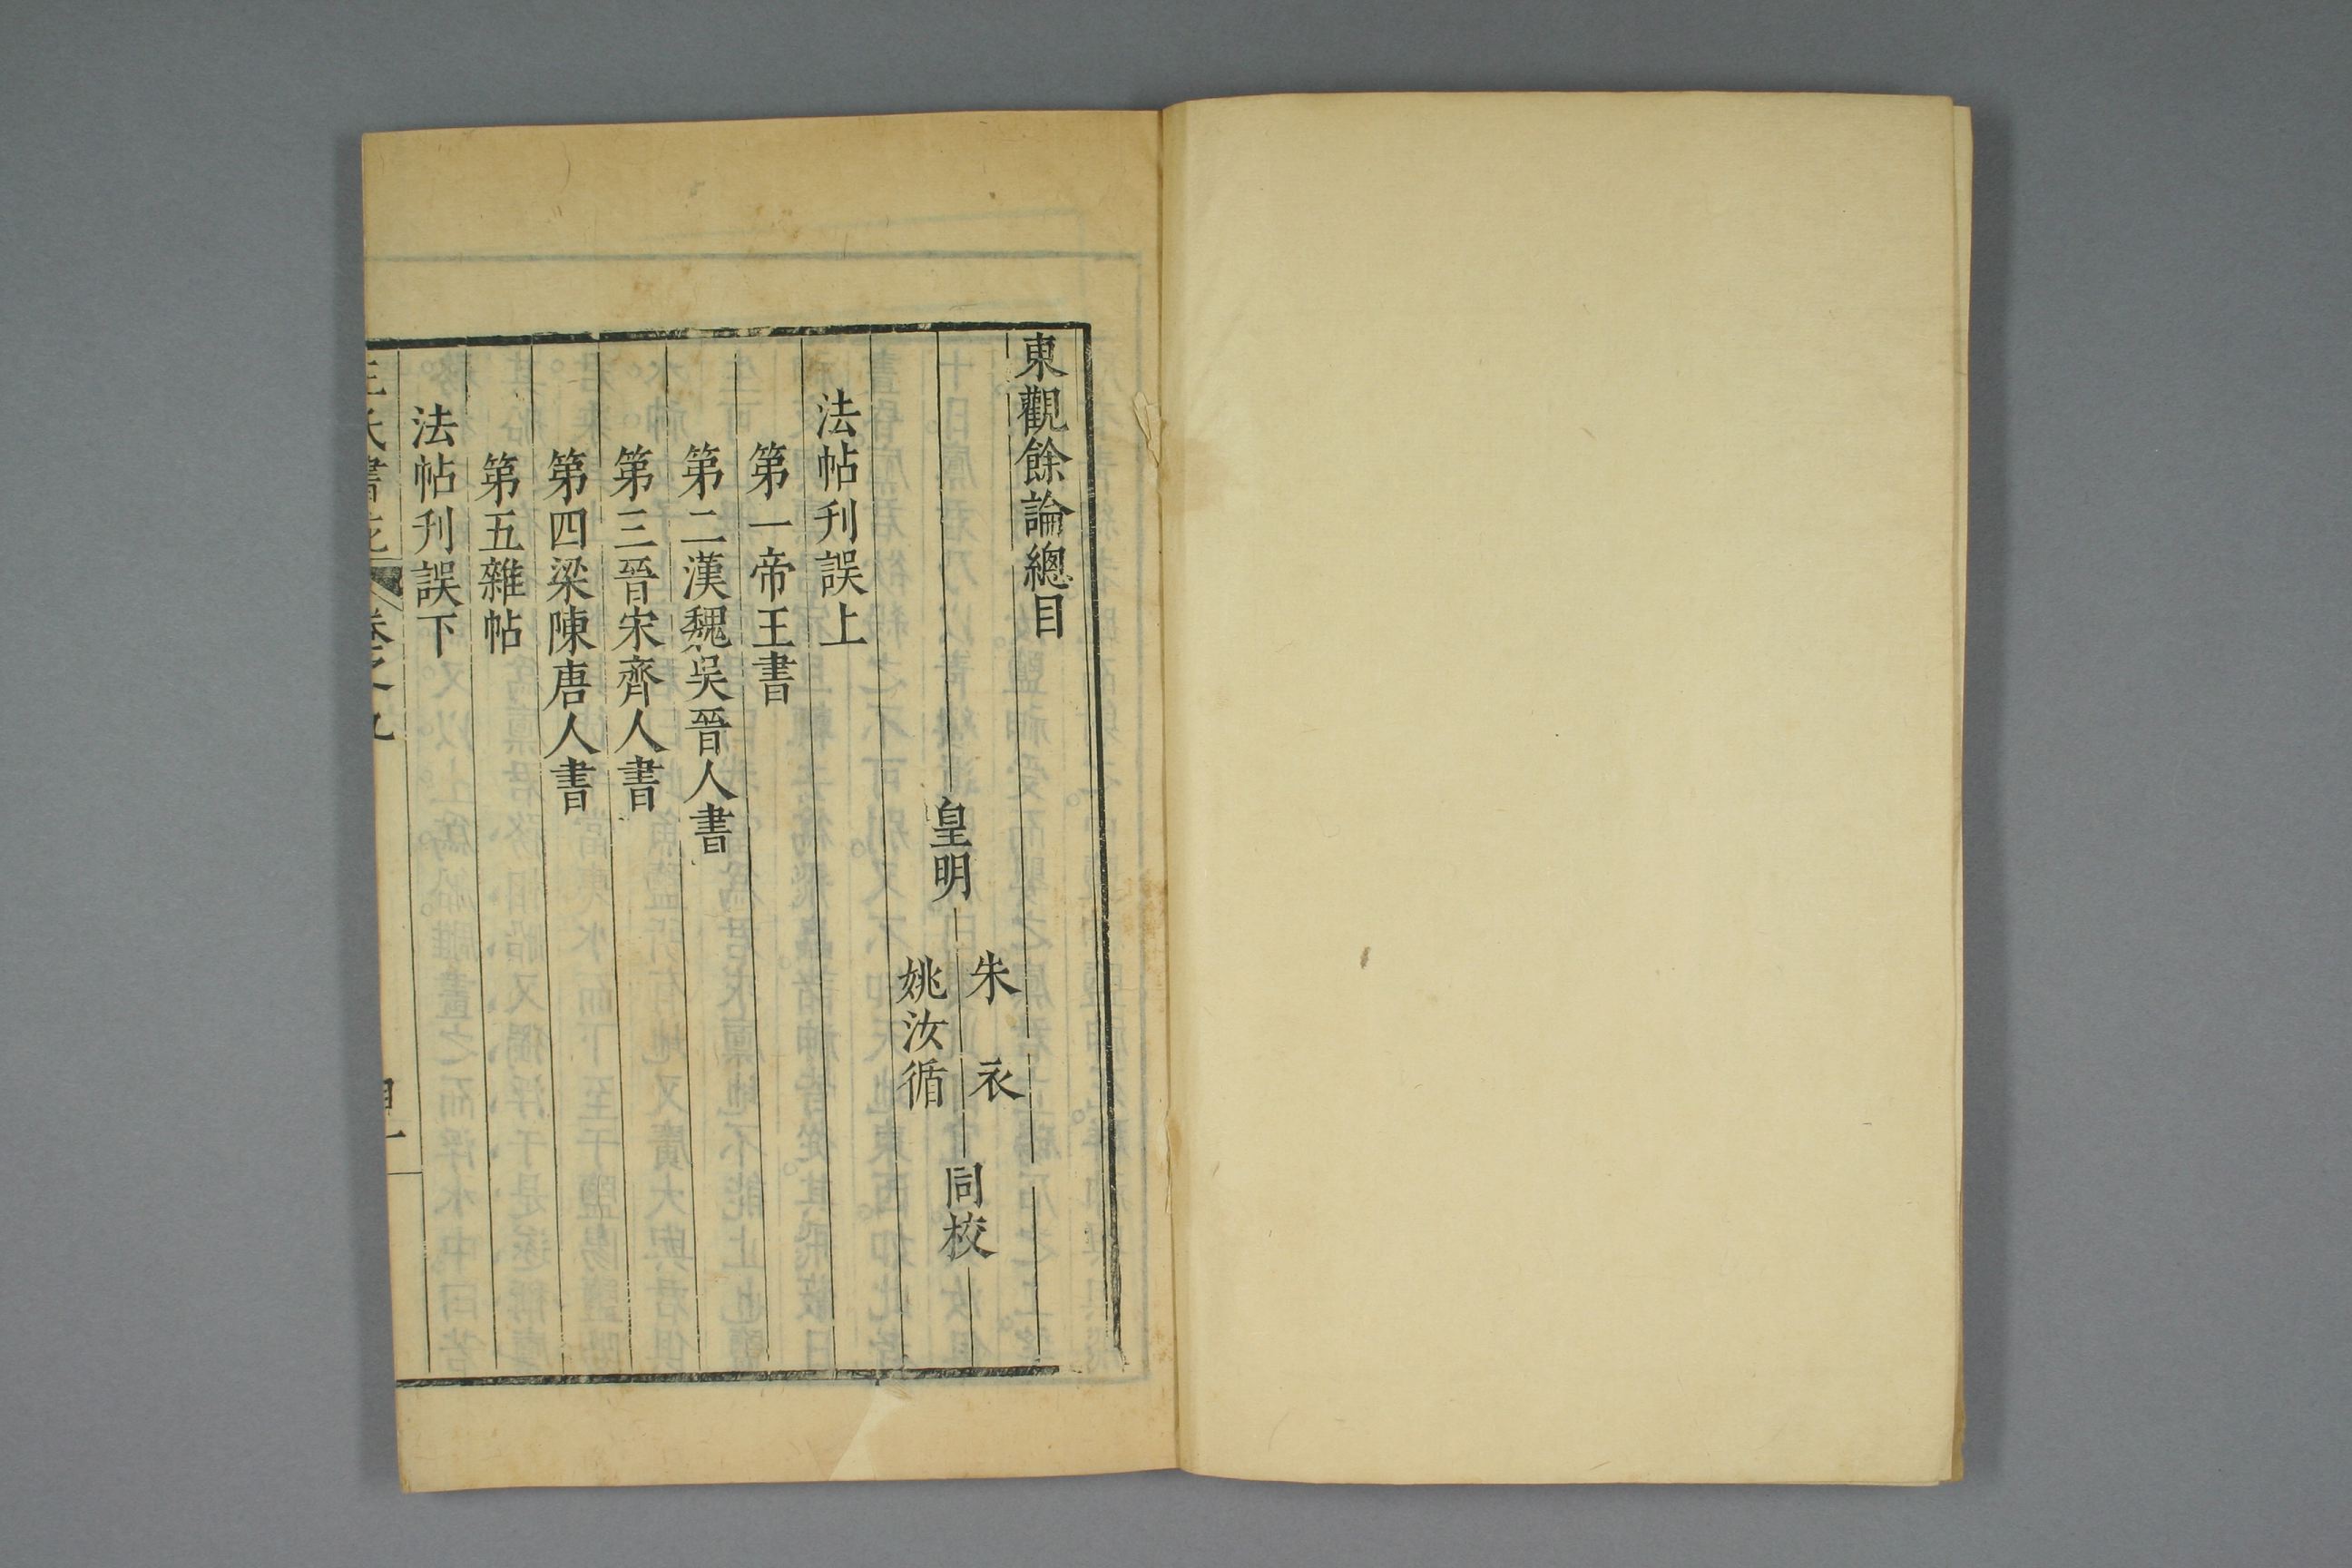 東觀餘論總目
皇明
朱　衣
姚汝循
同校
法帖刋誤上
第一帝王書
第二漢魏吳晉人書
第三晉宋齊人書
第四梁陳唐人書
第五雜帖
法帖刋誤下